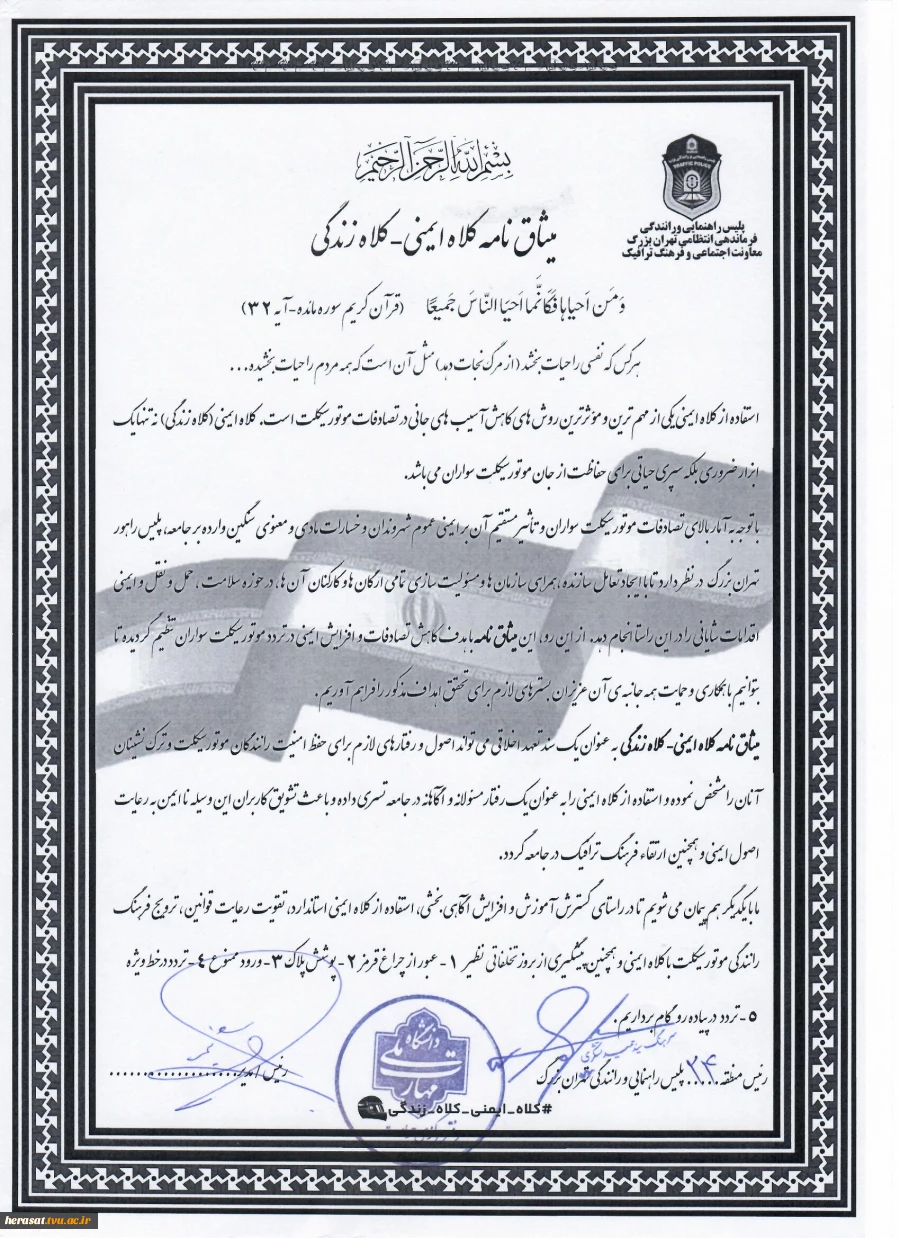 بسم الله الرحمن الرحیم
TRAFFIC POLICE
پلیس راهنمایی و رانندگی
فرماندهی انتظامی تهران بزرگ
معاونت اجتماعی و فرهنگ ترافیک
میثاق نامه کلاه ایمنی - کلاه زندگی
وَ مَن اَحیاها فَکَاَنَّما اَحیَا النّاسَ جَمیعًا (قرآن کریم سوره مائده - آیه ۳۲)
هر کس که نفسی را حیات بخشد (از مرگ نجات دهد) مثل آن است که همه مردم را حیات بخشیده ...
استفاده از کلاه ایمنی یکی از مهم ترین و مؤثرترین روش های کاهش آسیب های جانی در تصادفات موتورسیکلت است. کلاه ایمنی (کلاه زندگی) نه تنها یک
ابزار ضروری بلکه سپری حیاتی برای حفاظت از جان موتورسیکلت سواران می باشد.
با توجه به آمار بالای تصادفات موتورسیکلت سواران و تأثیر مستقیم آن بر ایمنی عموم شهروندان و خسارات مادی و معنوی سنگین وارده بر جامعه، پلیس راهور
تهران بزرگ در نظر دارد تا با ایجاد تعامل سازنده، همرای سازمان ها و مسئولیت سازی تمامی ارکان ها و کارکنان آن ها، در حوزه سلامت، حمل و نقل و ایمنی
اقدامات شایانی را در این راستا انجام دهد. از این رو، این میثاق نامه با هدف کاهش تصادفات و افزایش ایمنی در تردد موتورسیکلت سواران تنظیم گردیده تا
بتوانیم با همکاری و حمایت همه جانبه ی آن عزیزان بسترهای لازم برای تحقق اهداف مذکور را فراهم آوریم.
میثاق نامه کلاه ایمنی - کلاه زندگی به عنوان یک سند تعهد اخلاقی می تواند اصول و رفتارهای لازم برای حفظ امنیت رانندگان موتورسیکلت و ترک نشینان
آنان را مشخص نموده و استفاده از کلاه ایمنی را به عنوان یک رفتار مسئولانه و آگاهانه در جامعه تسری داده و باعث تشویق کاربران این وسیله نا ایمن به رعایت
اصول ایمنی و همچنین ارتقاء فرهنگ ترافیک در جامعه گردد.
ما با یکدیگر هم پیمان می شویم تا در راستای گسترش آموزش و افزایش آگاهی بخشی، استفاده از کلاه ایمنی استاندارد، تقویت رعایت قوانین، ترویج فرهنگ
رانندگی موتورسیکلت با کلاه ایمنی و همچنین پیشگیری از بروز تخلفاتی نظیر ۱- عبور از چراغ قرمز ۲- پوشش پلاک ۳- ورود ممنوع ۴- تردد در خط ویژه
۵- تردد در پیاده رو گام برداریم.
رئیس منطقه ...۲۴... پلیس راهنمایی و رانندگی تهران بزرگ
سرهنگ سید
دانشگاه ملی مهارت
رئیس
#کلاه_ایمنی_کلاه_زندگی
herasat.tvu.ac.ir